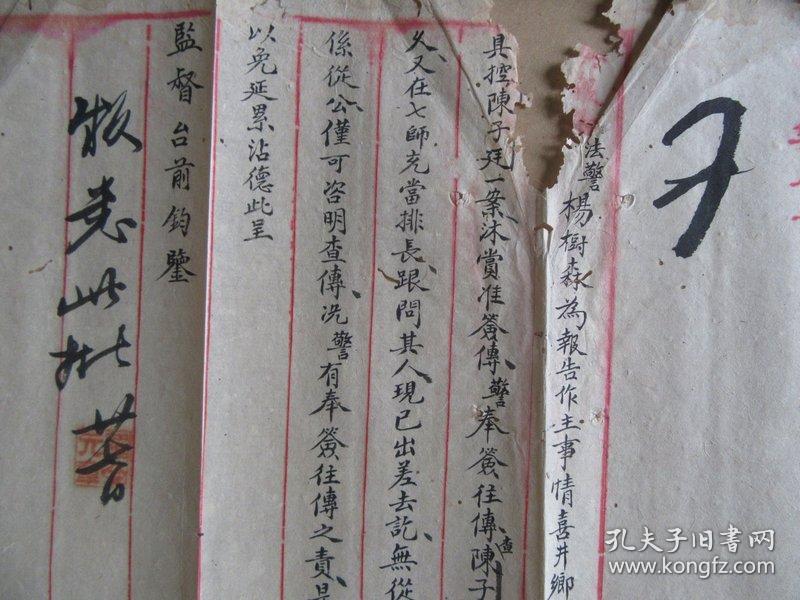 法警楊樹森為報告作主事情喜井鄉
具控陳子廷一案沐賞准簽傳警奉簽往傳查陳子
久又在七師充當排長跟問其人現已出差去訖無從
係從公僅可咨明查傳况警有奉簽往傳之責是
以免延累沾德此呈
監督台前鈞鑒
此批
孔夫子旧书网
www.kongfz.com